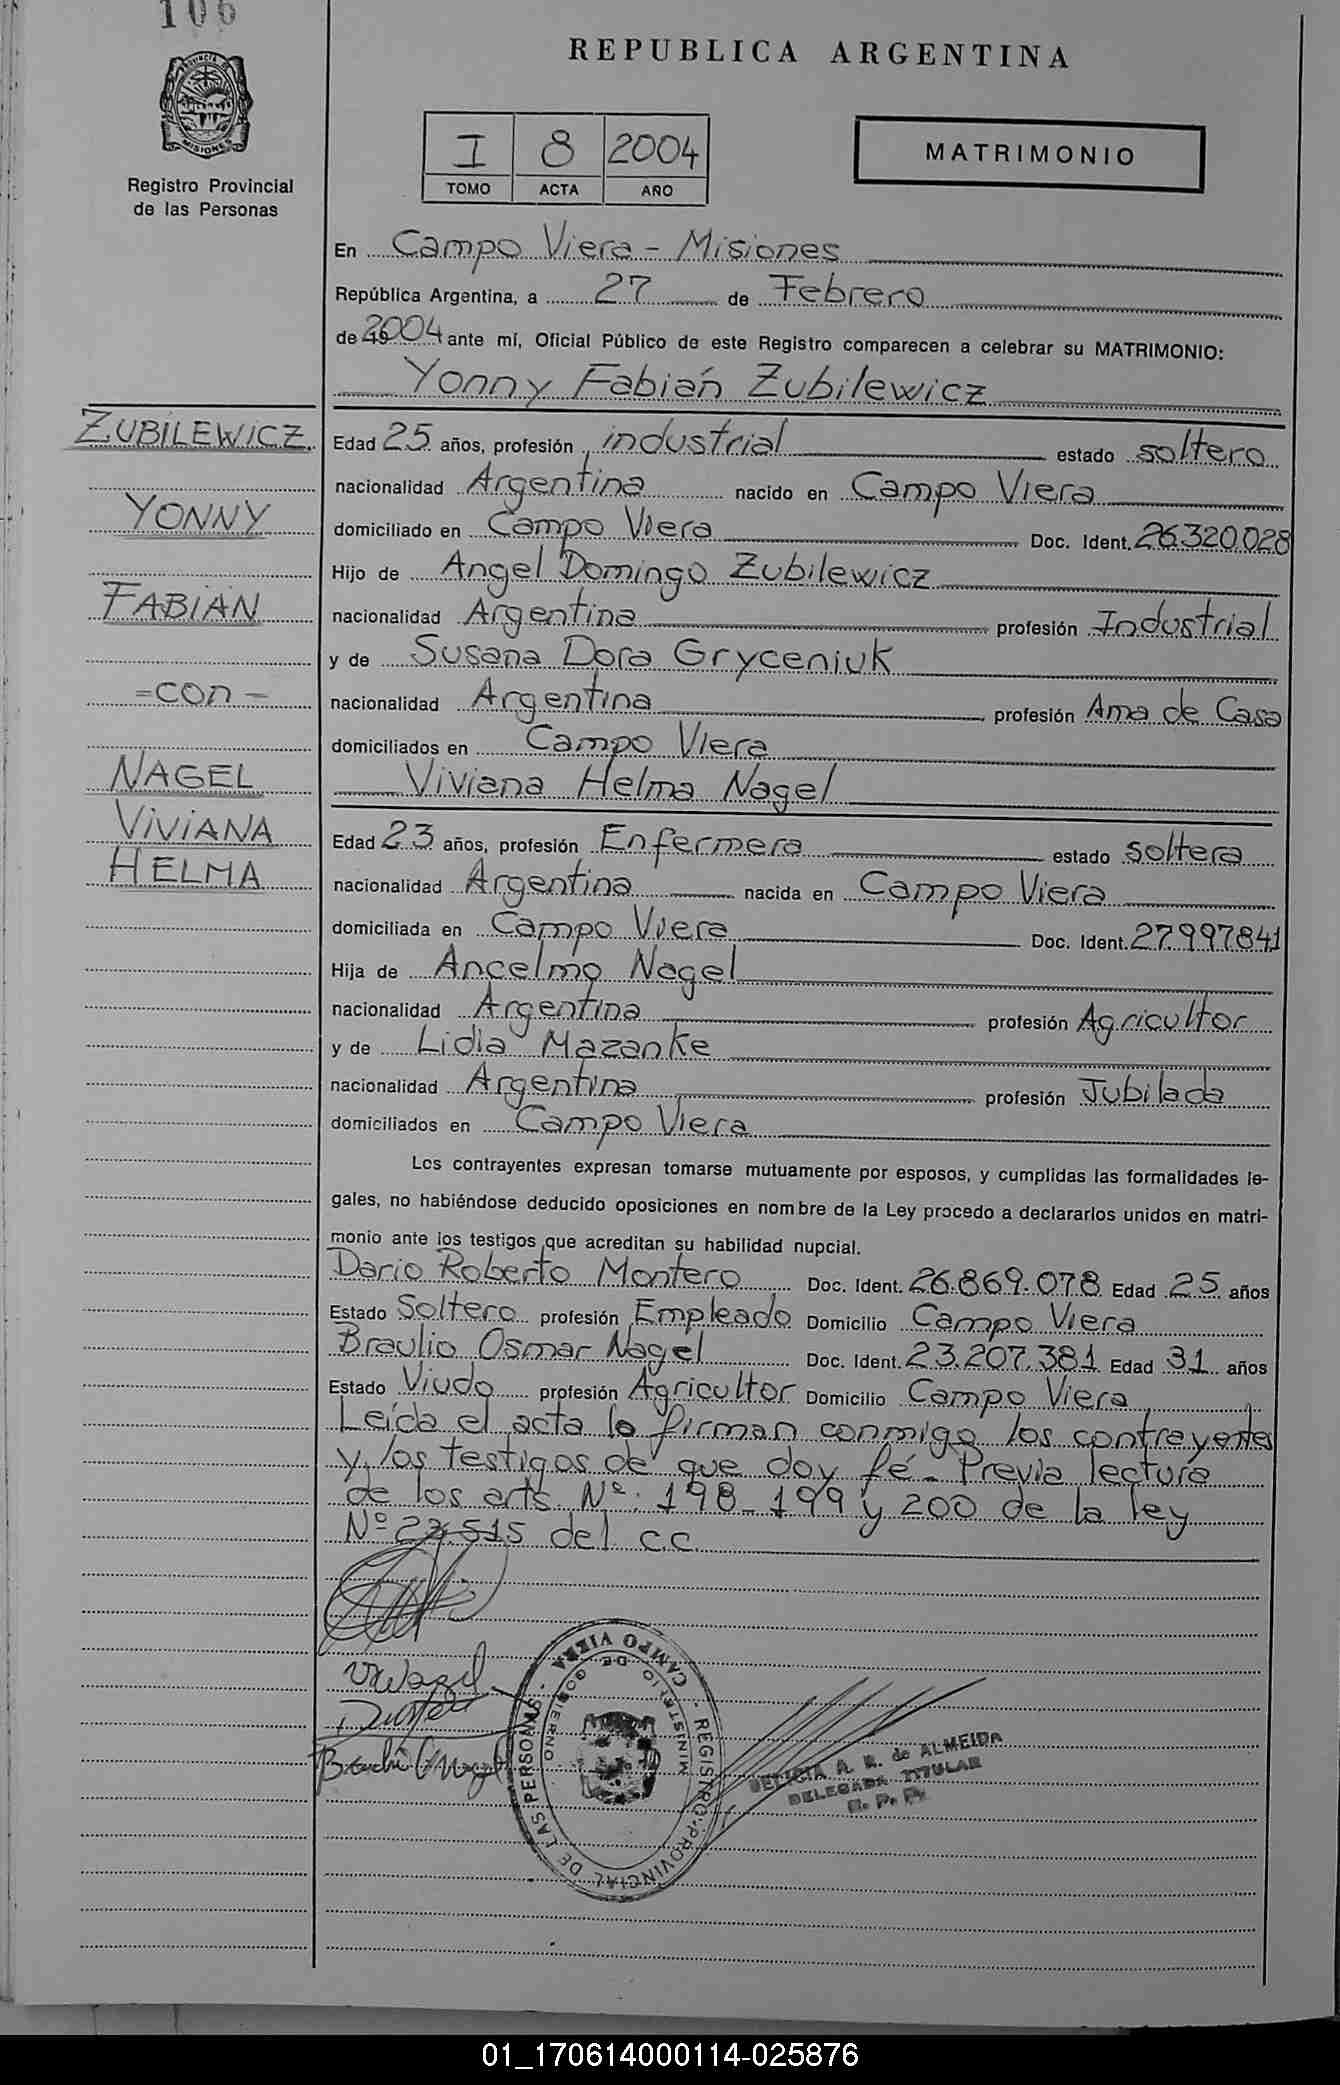 106
REPUBLICA ARGENTINA
PROVINCIA DE
MISIONES
Registro Provincial
de las Personas
I 8 2004
TOMO ACTA AÑO
MATRIMONIO
En Campo Viera - Misiones
República Argentina, a 27 de Febrero
de 19 2004 ante mí, Oficial Público de este Registro comparecen a celebrar su MATRIMONIO:
Yonny Fabián Zubilewicz
ZUBILEWICZ
YONNY
FABIÁN
=con=
NAGEL
VIVIANA
HELMA
Edad 25 años, profesión industrial estado soltero
nacionalidad Argentina nacido en Campo Viera
domiciliado en Campo Viera Doc. Ident. 26.320.028
Hijo de Angel Domingo Zubilewicz
nacionalidad Argentina profesión Industrial
y de Susana Dora Gryceniuk
nacionalidad Argentina profesión Ama de Casa
domiciliados en Campo Viera
Viviana Helma Nagel
Edad 23 años, profesión Enfermera estado soltera
nacionalidad Argentina nacida en Campo Viera
domiciliada en Campo Viera Doc. Ident. 27.997841
Hija de Ancelmo Nagel
nacionalidad Argentina profesión Agricultor
y de Lidia Mazanke
nacionalidad Argentina profesión Jubilada
domiciliados en Campo Viera
Los contrayentes expresan tomarse mutuamente por esposos, y cumplidas las formalidades le-
gales, no habiéndose deducido oposiciones en nombre de la Ley procedo a declararlos unidos en matri-
monio ante los testigos que acreditan su habilidad nupcial.
Dario Roberto Montero Doc. Ident. 26.869.078 Edad 25 años
Estado Soltero profesión Empleado Domicilio Campo Viera
Braulio Osmar Nagel Doc. Ident. 23.207.381 Edad 31 años
Estado Viudo profesión Agricultor Domicilio Campo Viera
Leída el acta la firman conmigo los contrayentes
y los testigos de que doy fé. Previa lectura
de los arts Nº: 198-199 y 200 de la ley
Nº 23.515 del c.c.
REGISTRO PROVINCIAL DE LAS PERSONAS - CAMPO VIERA
MINISTERIO DE GOBIERNO
DELICIA A. R. de ALMEIDA
DELEGADA TITULAR
R. P. P.
01_170614000114-025876